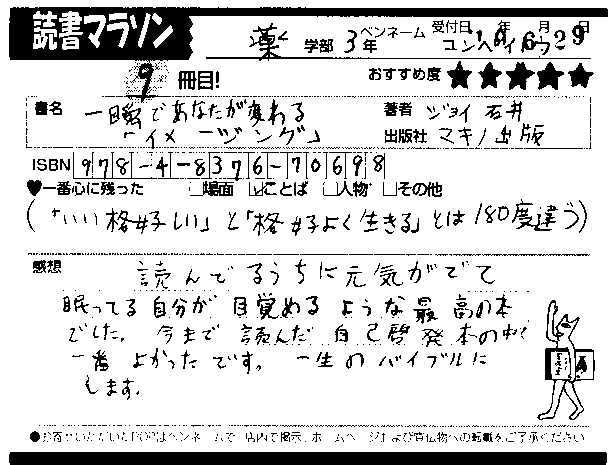 読書マラソン
薬 学部 3年 ペンネーム 受付日 年 月 日
9 冊目! おすすめ度 ★★★★★
書名 一瞬であなたが変わる 著者 ジョイ石井
「イメージング」 出版社 マキノ出版
ISBN 978-4-8376-70698
♥一番心に残った □場面 ☑ことば □人物 □その他
(「いい格好しい」と「格好よく生きる」とは180度違う)
感想 読んでるうちに元気がでて
眠ってる自分が目覚めるような最高の本
でした。今まで読んだ自己啓発本の中で
一番よかったです。一生のバイブルに
します。
●お寄せいただいたPOPはペンネームで、店内で掲示、ホームページおよび宣伝物への転載をご了承ください